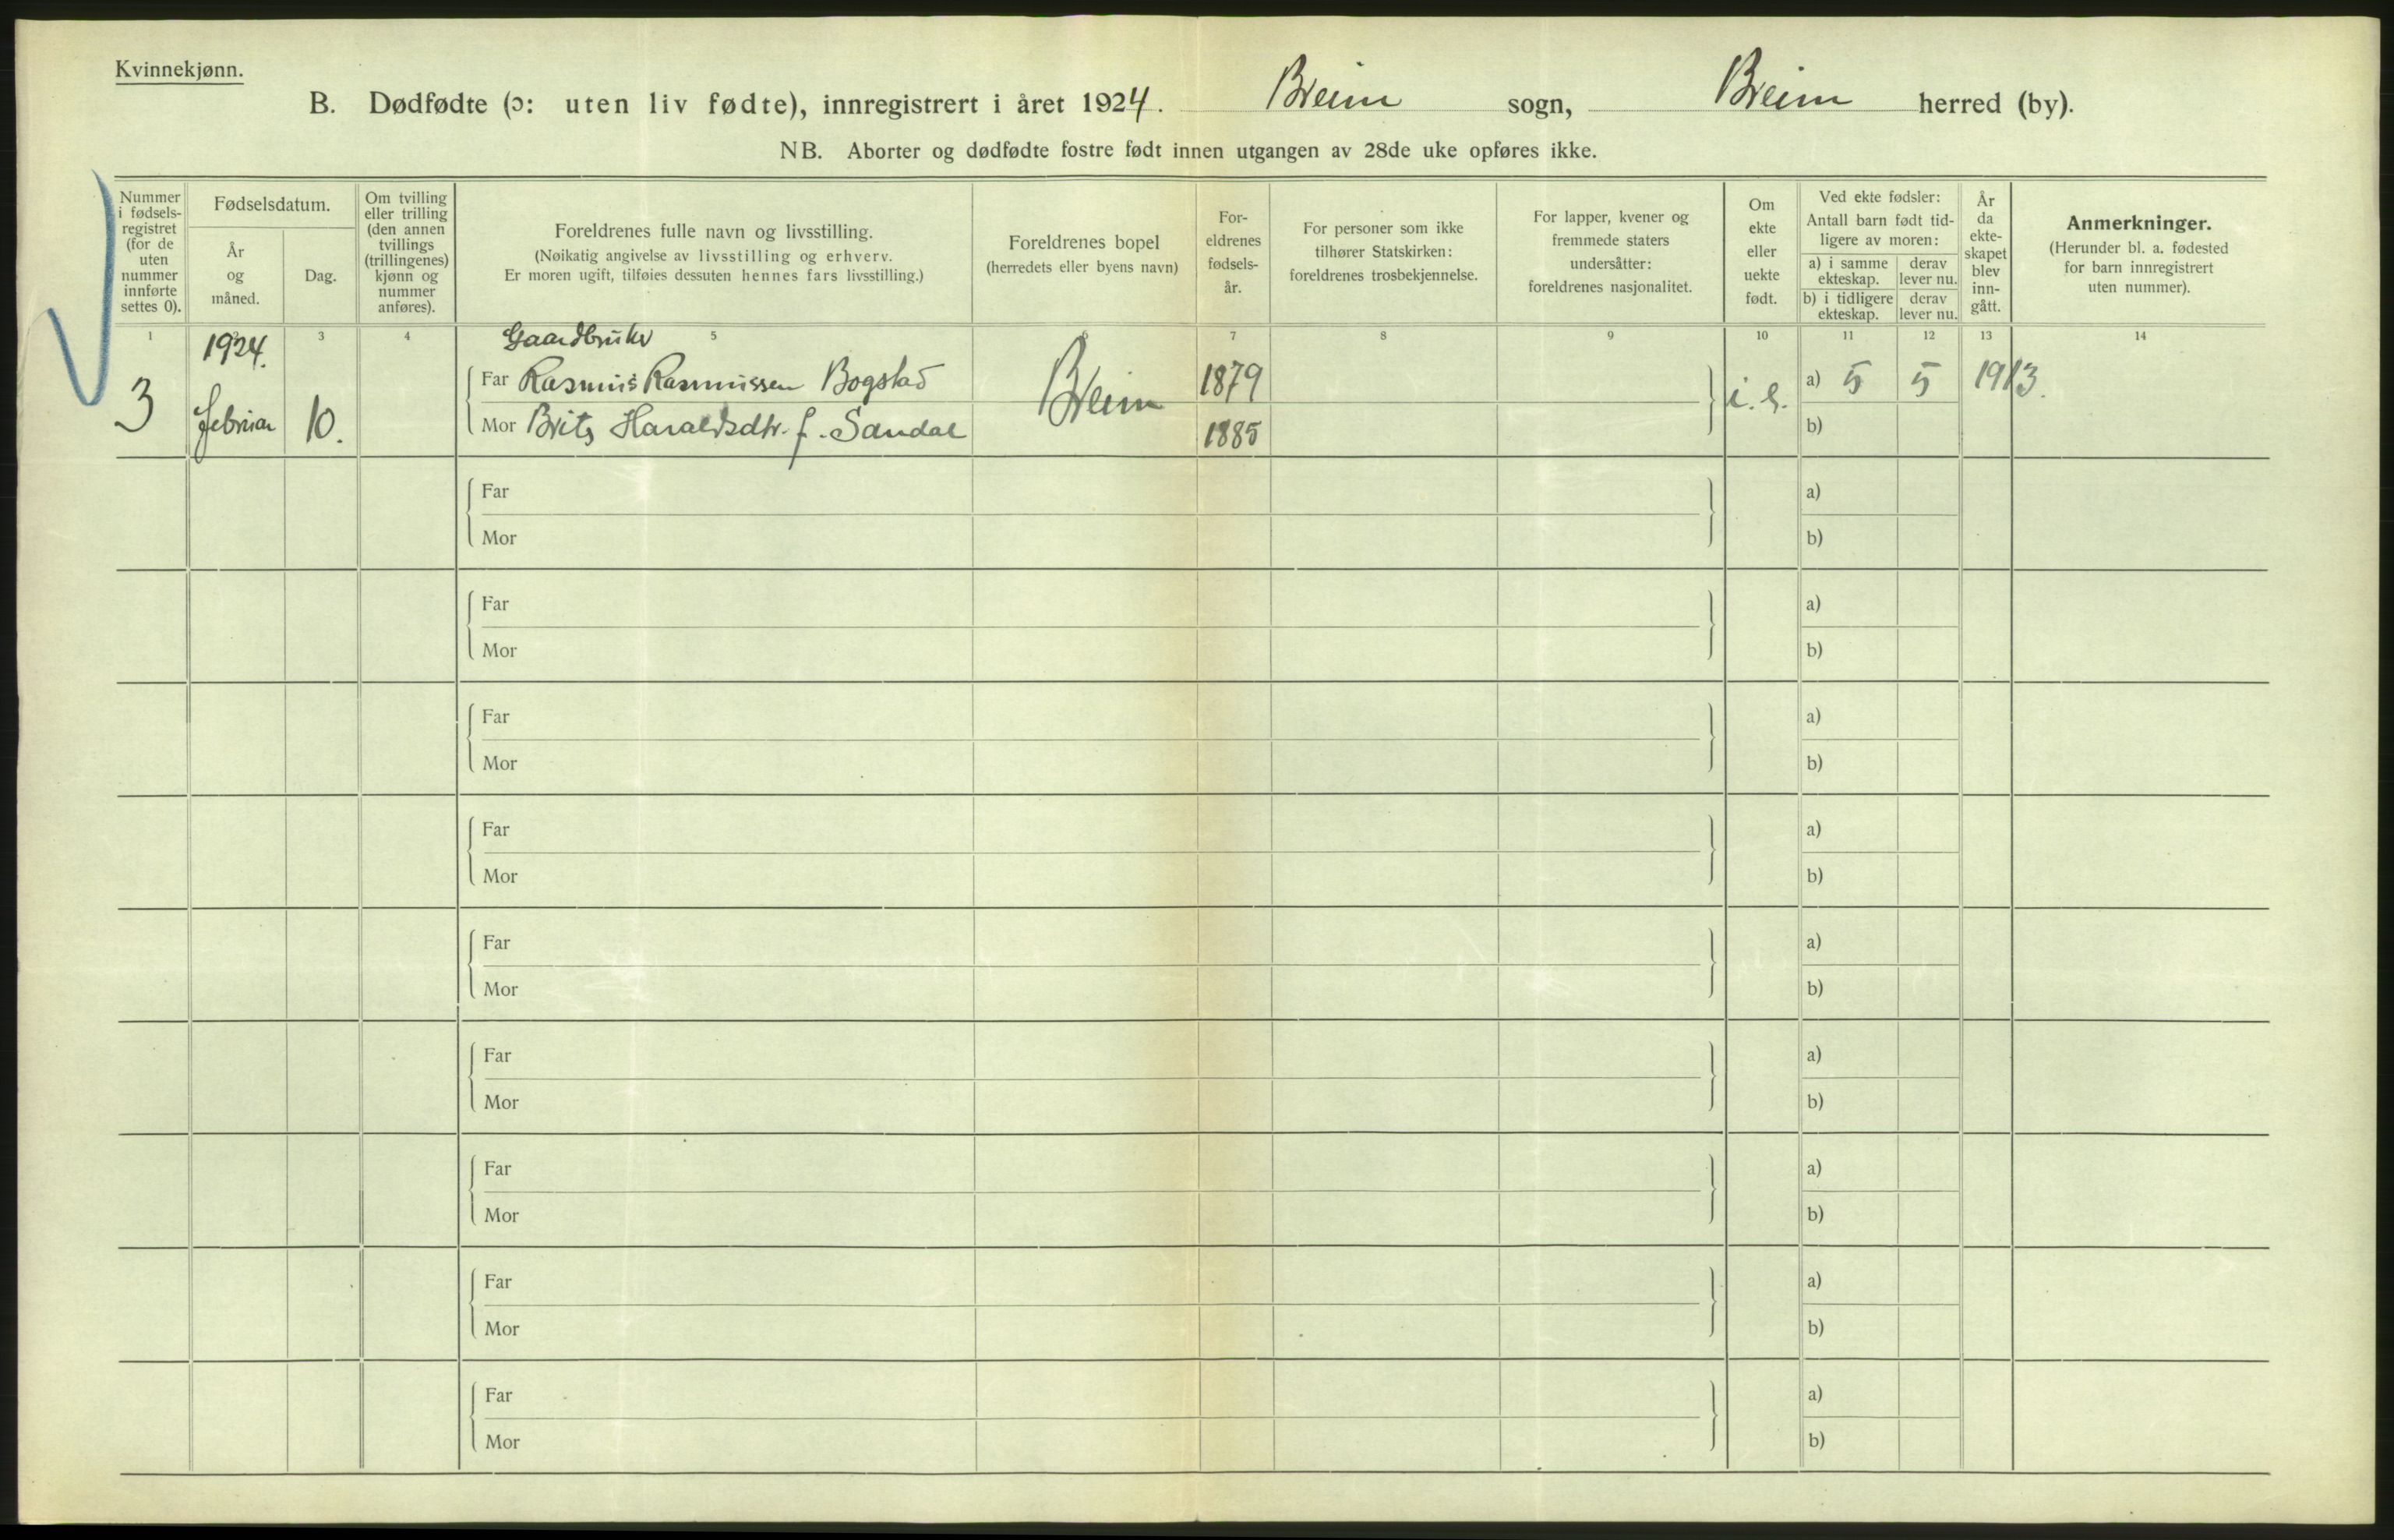 Kvinnekjønn.
B. Dødfødte (ɔ: uten liv fødte), innregistrert i året 1924. Breim sogn, Breim herred (by).
NB. Aborter og dødfødte fostre født innen utgangen av 28de uke opføres ikke.
Nummer
i fødsels-
registret
(for de
uten
nummer
innførte
settes 0).
Fødselsdatum.
År
og
måned.
Dag.
Om tvilling
eller trilling
(den annen
tvillings
(trillingenes)
kjønn og
nummer
anføres).
Foreldrenes fulle navn og livsstilling.
(Nøikatig angivelse av livsstilling og erhverv.
Er moren ugift, tilføies dessuten hennes fars livsstilling.)
Foreldrenes bopel
(herredets eller byens navn)
For-
eldrenes
fødsels-
år.
For personer som ikke
tilhører Statskirken:
foreldrenes trosbekjennelse.
For lapper, kvener og
fremmede staters
undersåtter:
foreldrenes nasjonalitet.
Om
ekte
eller
uekte
født.
Ved ekte fødsler:
Antall barn født tid-
ligere av moren:
a) i samme
ekteskap.
derav
lever nu.
b) i tidligere
ekteskap.
derav
lever nu.
År
da
ekte-
skapet
blev
inn-
gått.
Anmerkninger.
(Herunder bl. a. fødested
for barn innregistrert
uten nummer).
1 3 4 5 6 7 8 9 10 11 12 13 14
1924. Gaardbruker
Far Rasmus Rasmussen Bogstad 1879 a) 5 5 1913.
3 februar 10. Breim i. e.
Mor Brite Haraldsdtr. f. Sandal 1885 b)
Far a)
Mor b)
Far a)
Mor b)
Far a)
Mor b)
Far a)
Mor b)
Far a)
Mor b)
Far a)
Mor b)
Far a)
Mor b)
Far a)
Mor b)
Far a)
Mor b)